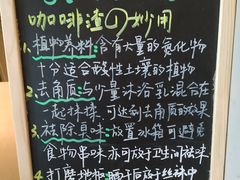 咖啡渣的妙用
1.植物养料:含有大量的氮化物
十分适合酸性土壤的植物
2.去角质:与少量沐浴乳混合在
一起抹揉 可达到去角质的效果
3.祛除臭味:放置冰箱可避免
食物串味 亦可放于卫生间祛味
4.打磨地板:晒干后放于丝袜中